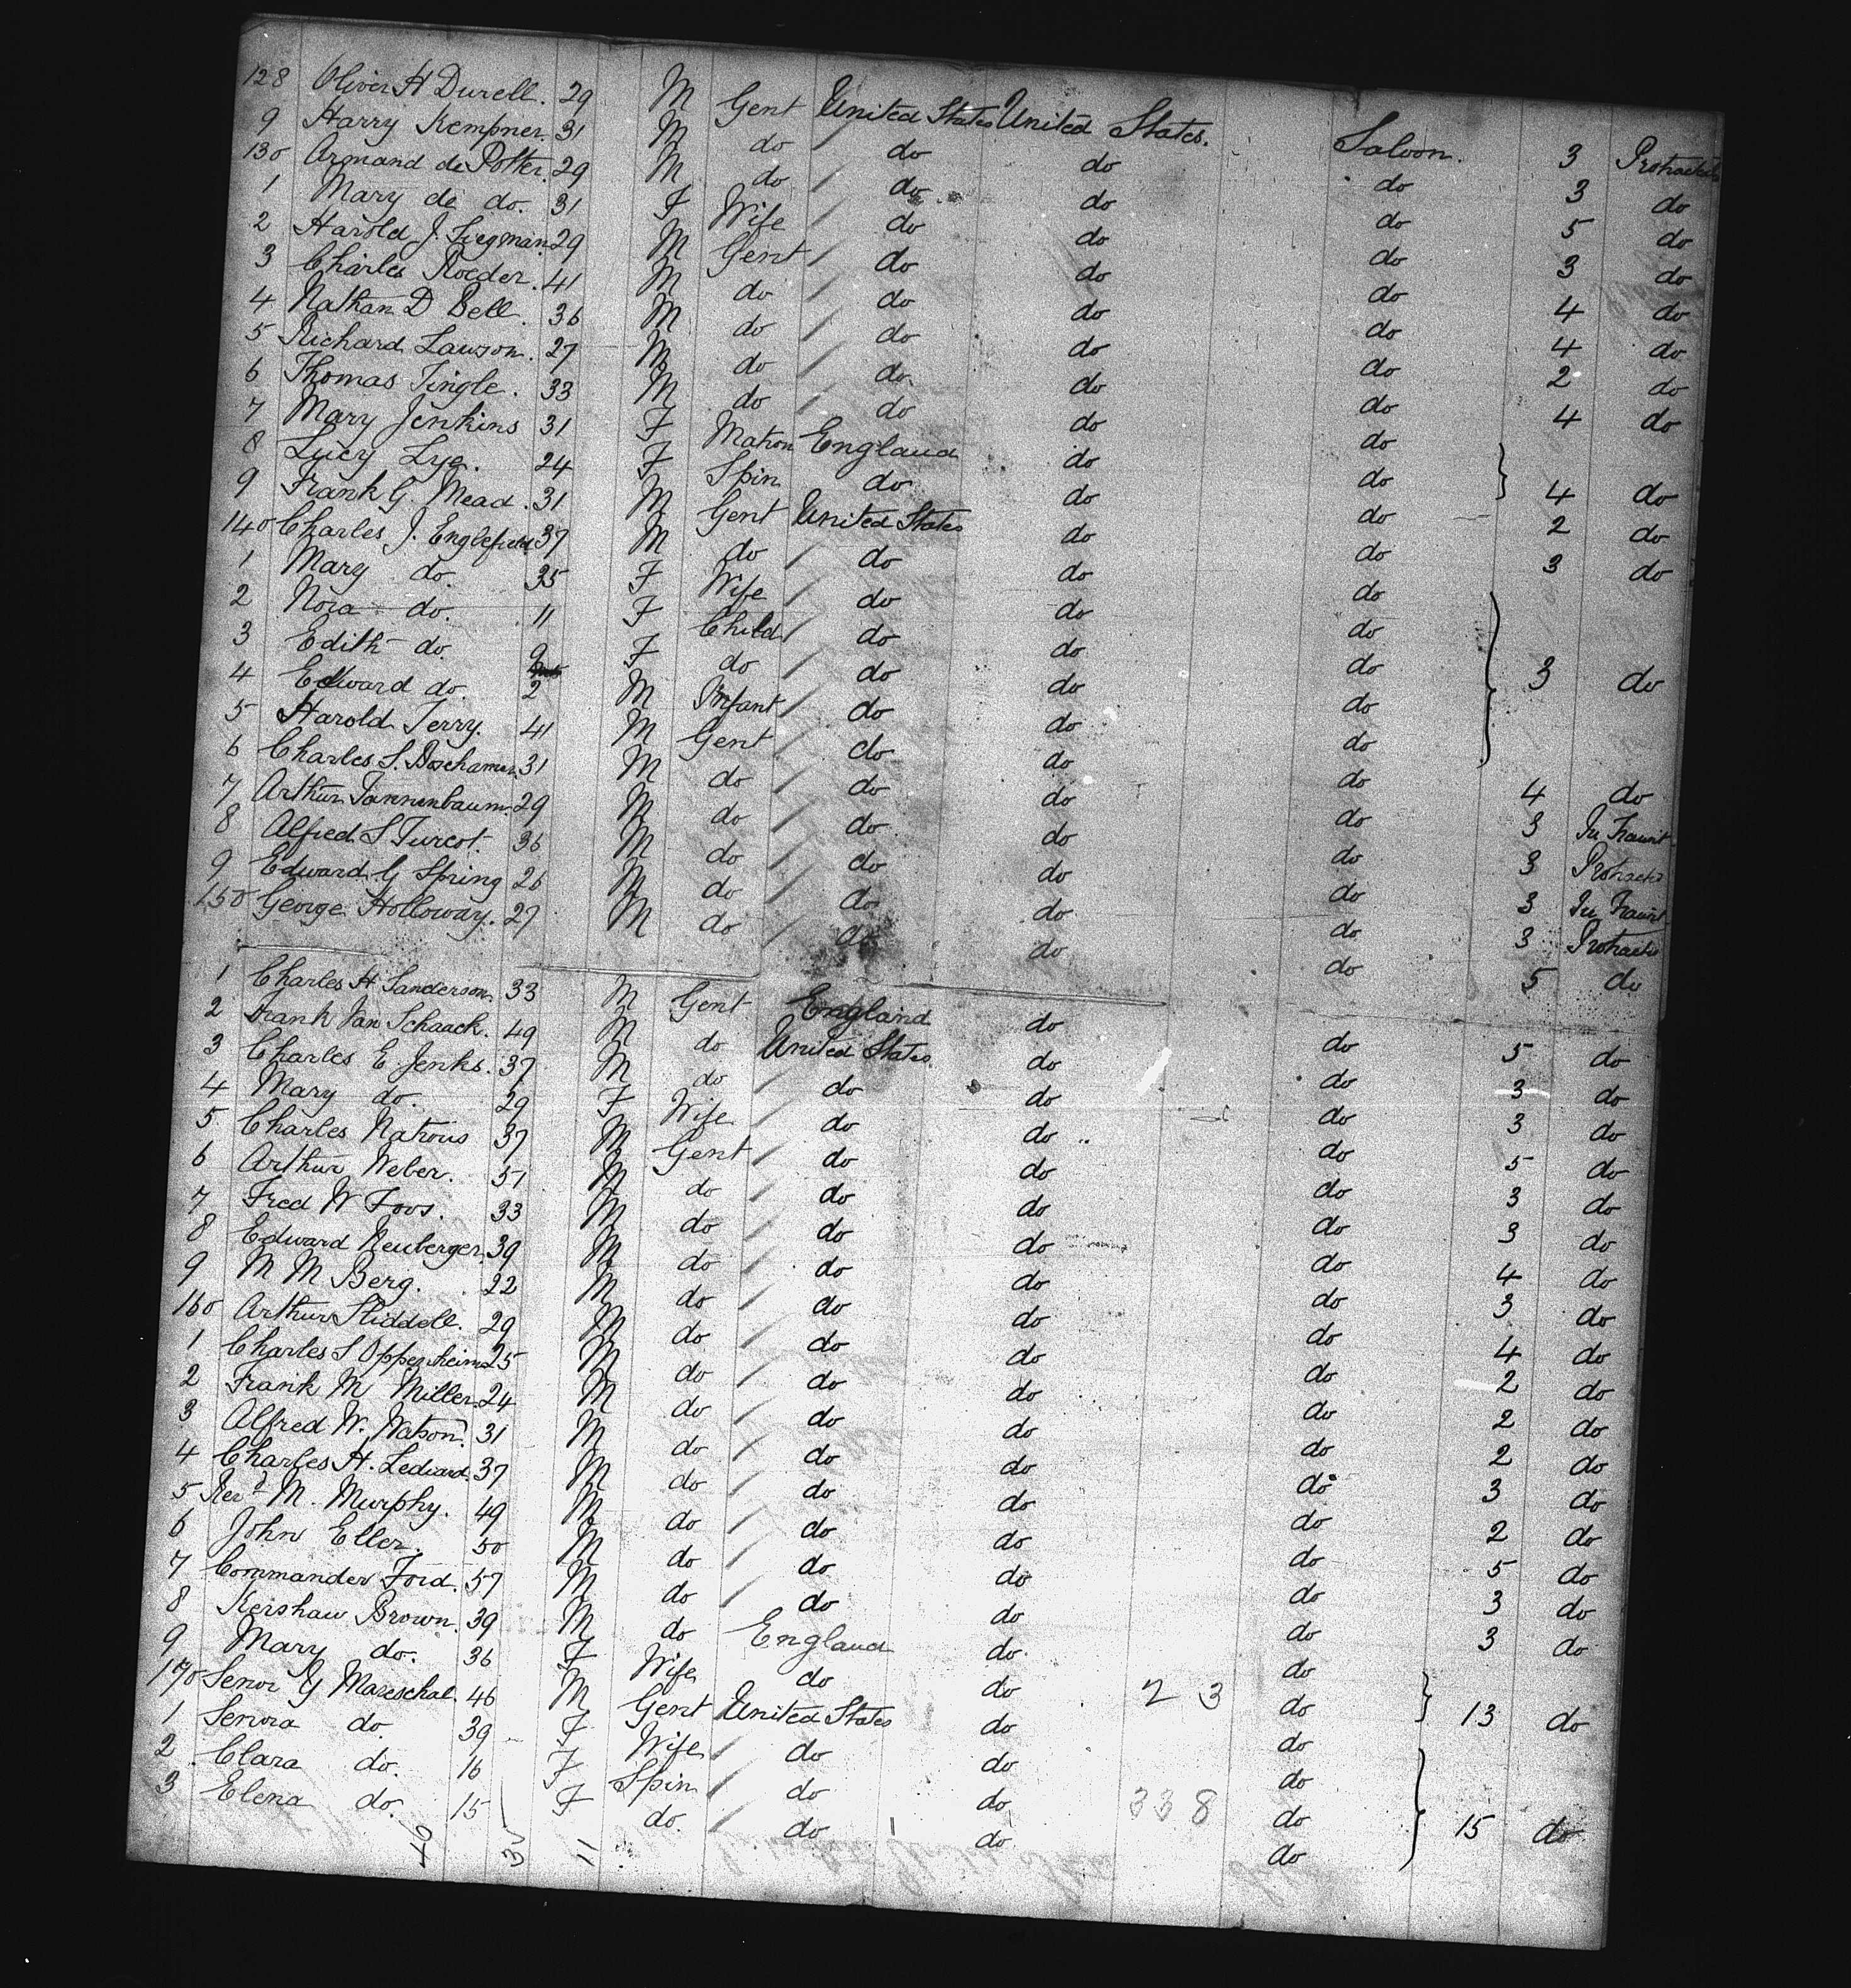 128 Oliver H Durell. 29 M Gent United States United States. Saloon. 3 Protracted
9 Harry Kempner. 31 M do do do do 3 do
130 Armand de Potter. 29 M do do do do 5 do
1 Mary de do. 31 F Wife do do do
2 Harold J. Siegman 29 M Gent do do do 3 do
3 Charles Roeder. 41 M do do do do 4 do
4 Nathan D Bell. 36 M do do do do 4 do
5 Richard Lawson. 27 M do do do do 2 do
6 Thomas Tingle. 33 M do do do do 4 do
7 Mary Jenkins 31 F Matron England do do
8 Lucy Lye. 24 F Spin do do do 4 do
9 Frank G. Mead. 31 M Gent United States do do 2 do
140 Charles J. Englefield 37 M do do do do 3 do
1 Mary do. 35 F Wife do do do
2 Nora do. 11 F Child do do do
3 Edith do. 9 F do do do do 3 do
4 Edward do. 2 M Infant do do do
5 Harold Terry. 41 M Gent do do do 4 do
6 Charles S. 31 M do do do do 3 In Transit
7 Arthur Tannenbaum. 29 M do do do do 3 Protracted
8 Alfred S Turcot. 36 M do do do do 3 In Transit
9 Edward G Spring 26 M do do do do 3 Protracted
150 George Holloway. 27 M do do do do 5 do
1 Charles H Sanderson. 33 M Gent England do do 5 do
2 Frank Van Schaack. 49 M do United States do do 3 do
3 Charles E Jenks. 37 M do do do do 3 do
4 Mary do. 29 F Wife do do do 5 do
5 Charles Natrous 37 M Gent do do do 3 do
6 Arthur Weber. 51 M do do do do 3 do
7 Fred W Foos. 33 M do do do do 4 do
8 Edward Neuberger. 39 M do do do do 3 do
9 M M Berg. 22 M do do do do 4 do
160 Arthur Sliddell. 29 M do do do do 2 do
1 Charles S Oppenheim 25 M do do do do 2 do
2 Frank M Miller. 24 M do do do do 2 do
3 Alfred W. Watson. 31 M do do do do 3 do
4 Charles H. Lediard. 37 M do do do do 2 do
5 Revd M. Murphy. 49 M do do do do 5 do
6 John Eller. 50 M do do do do 3 do
7 Commander Ford. 57 M do do do do 3 do
8 Kershaw Brown. 39 M do England do do
9 Mary do. 36 F Wife do do do 13 do
170 Senor G Mareschal. 46 M Gent United States do 23 do
1 Senora do 39 F Wife do do do
2 Clara do. 16 F Spin do do do 15 do
3 Elena do. 15 F do. do do 338 do
46 3 11